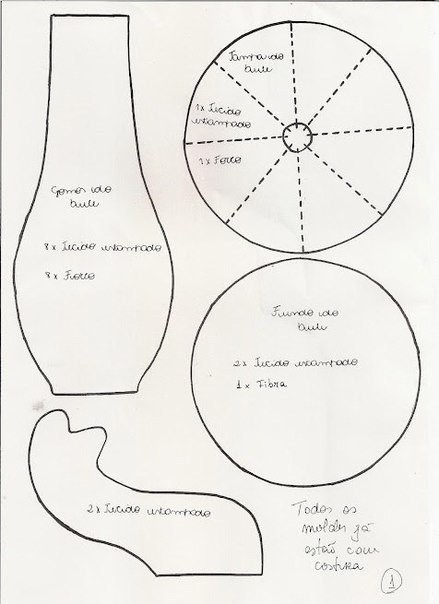 Tampa do
bule
1x Tecido
estampado
1x Forro
Gomos do
bule
8x Tecido estampado
8x Forro
Fundo do
bule
2x Tecido estampado
1x Fibra
2x Tecido estampado
Todos os
moldes já
estão com
costura
1